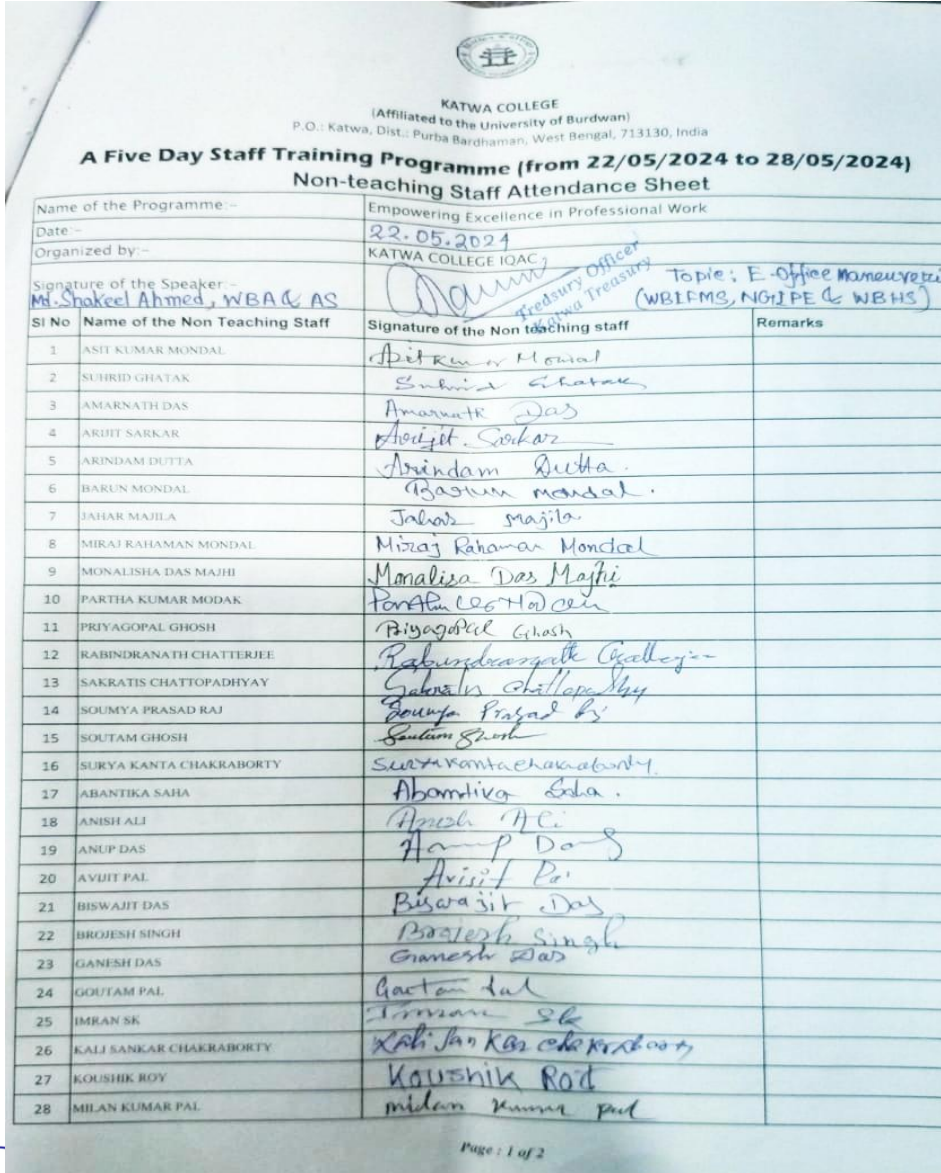 KATWA COLLEGE
(Affiliated to the University of Burdwan)
P.O.: Katwa, Dist.: Purba Bardhaman, West Bengal, 713130, India
A Five Day Staff Training Programme (from 22/05/2024 to 28/05/2024)
Non-teaching Staff Attendance Sheet
Name of the Programme:- Empowering Excellence in Professional Work
Date:- 22.05.2024
Organized by:- KATWA COLLEGE IQAC
Signature of the Speaker:-
Md. Shakeel Ahmed, WBA & AS
Treasury Officer
Katwa Treasury
Topic: E-Office
(WBIFMS, NGIPE & WBHS)
Sl No Name of the Non Teaching Staff Signature of the Non teaching staff Remarks
1 ASIT KUMAR MONDAL Asit Kumar Mondal
2 SUHRID GHATAK Suhrid Ghatak
3 AMARNATH DAS Amarnath Das
4 ARIJIT SARKAR Arijit Sarkar
5 ARINDAM DUTTA Arindam Dutta.
6 BARUN MONDAL Barun mondal.
7 JAHAR MAJILA Jahar Majila
8 MIRAJ RAHAMAN MONDAL Miraj Rahaman Mondal
9 MONALISHA DAS MAJHI Monalisa Das Majhi
10 PARTHA KUMAR MODAK
11 PRIYAGOPAL GHOSH Priyagopal Ghosh
12 RABINDRANATH CHATTERJEE Rabindranath Chatterjee
13 SAKRATIS CHATTOPADHYAY
14 SOUMYA PRASAD RAJ Soumya Prasad Raj
15 SOUTAM GHOSH Soutam Ghosh
16 SURYA KANTA CHAKRABORTY Surya Kanta Chakraborty.
17 ABANTIKA SAHA Abantika Saha.
18 ANISH ALI Anish Ali
19 ANUP DAS Anup Das
20 AVIJIT PAL Avijit Pal
21 BISWAJIT DAS Biswajit Das
22 BROJESH SINGH Brojesh Singh
23 GANESH DAS Ganesh Das
24 GOUTAM PAL Goutam Pal
25 IMRAN SK Imran Sk
26 KALI SANKAR CHAKRABORTY Kali Sankar Chakraborty
27 KOUSHIK ROY Koushik Roy
28 MILAN KUMAR PAL milan kumar pal
Page : 1 of 2